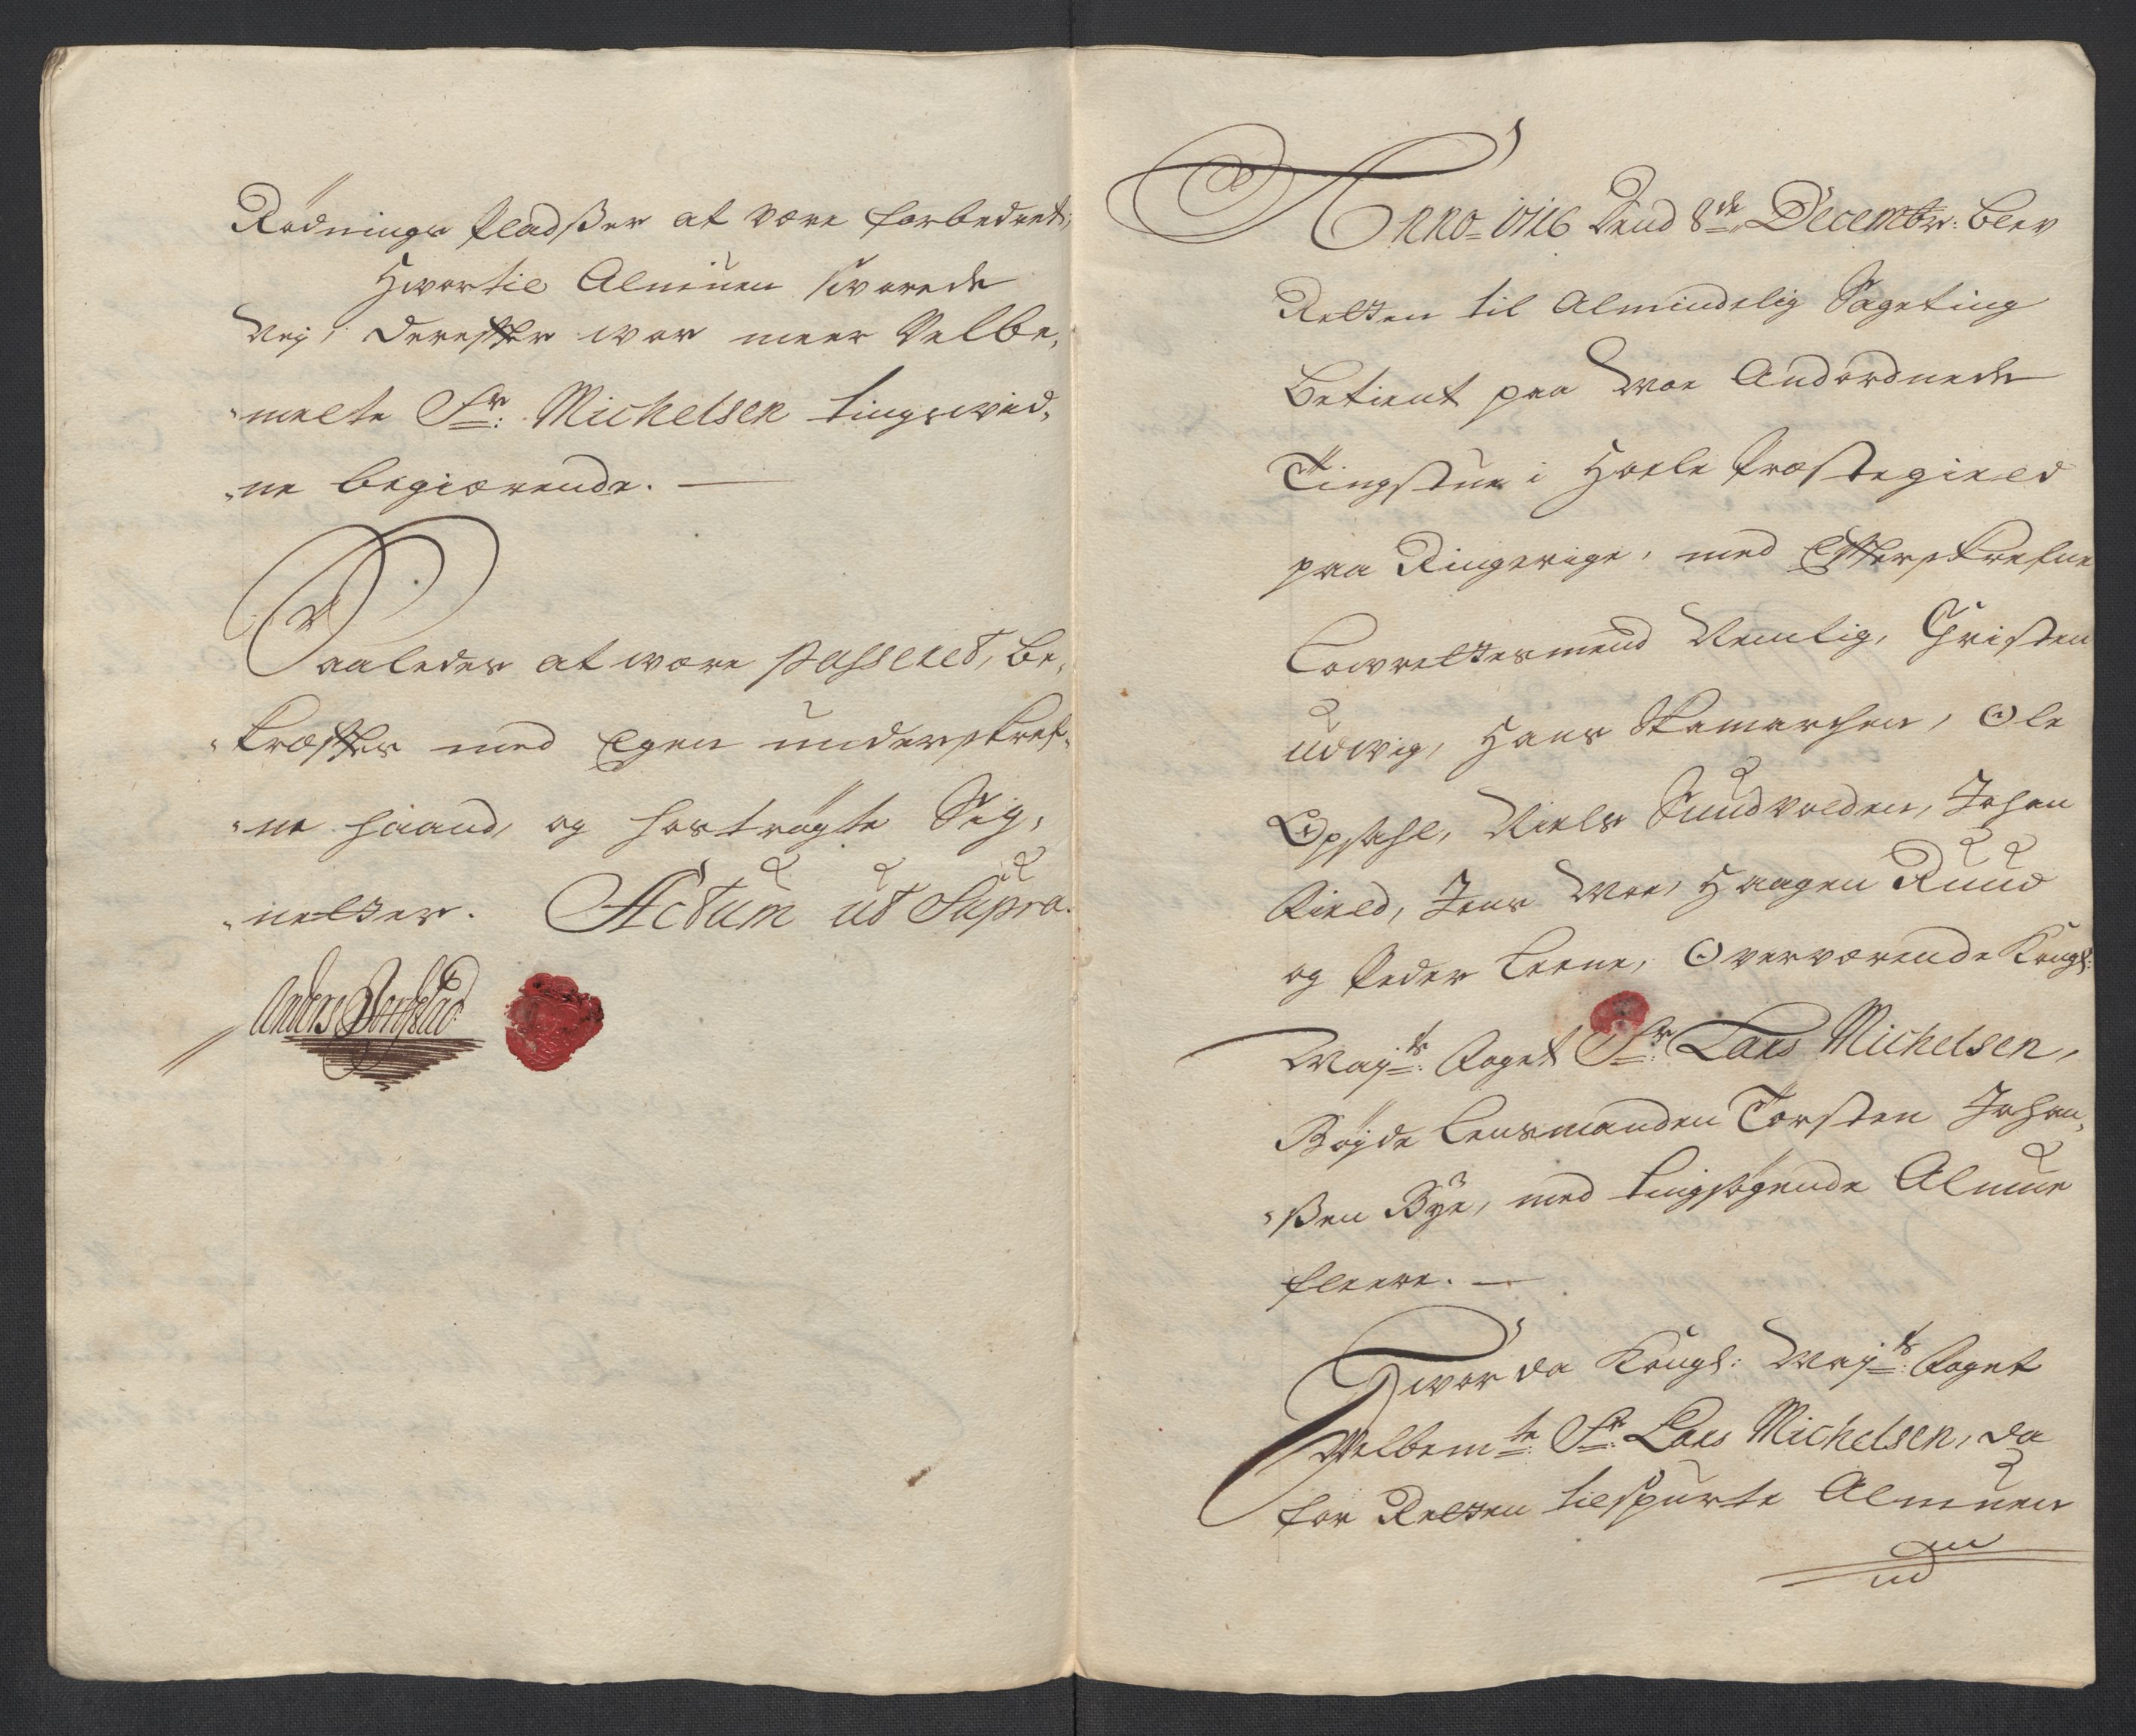 Rødnings Pladser at være forbedret,
Hvortil Almuen svarede
Nej, Derefter war meer Velbe,
melte Sr: Michelsen tingswid,
ne begiærende. —
Saaledes at wære passeret, be,
kræfter med Egen underskref,
ne haand, og hostrøgte Sig,
netter. Actum ut Supra.
Anders
Anno 1716 Dend 8de Decembr: blev
Retten til Almindelig Sageting
betient paa Woe Andordnede
Tingstue i Hoele Præstegield
paa Ringerige, med Efterskrefne
Lawrettesmend Nemlig, Christen
Udwig, Hans Stamarchen, Ole
Opsahl, Niels Sundvolden, Johan
Field, Jens Moe, Haagen Ruud
og Peder Leene, Overværende Kongl:
Mayts: Foget Sr: Lars Michelsen,
Bøyde Lensmanden Torsten Johan,
ßen Bye, med tingsøgende Almue
fleere. —
Hwor da Kongl: Mayts: Foget
Welbemte: Sr: Lars Michelsen, da
for Retten tilspurte Almuen